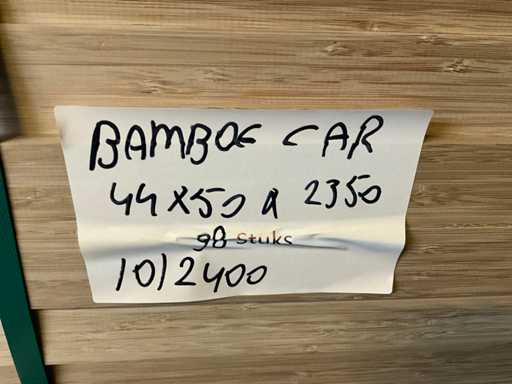 BAMBOE CAR
44 x 50 x 2350
98 Stuks
10/2400